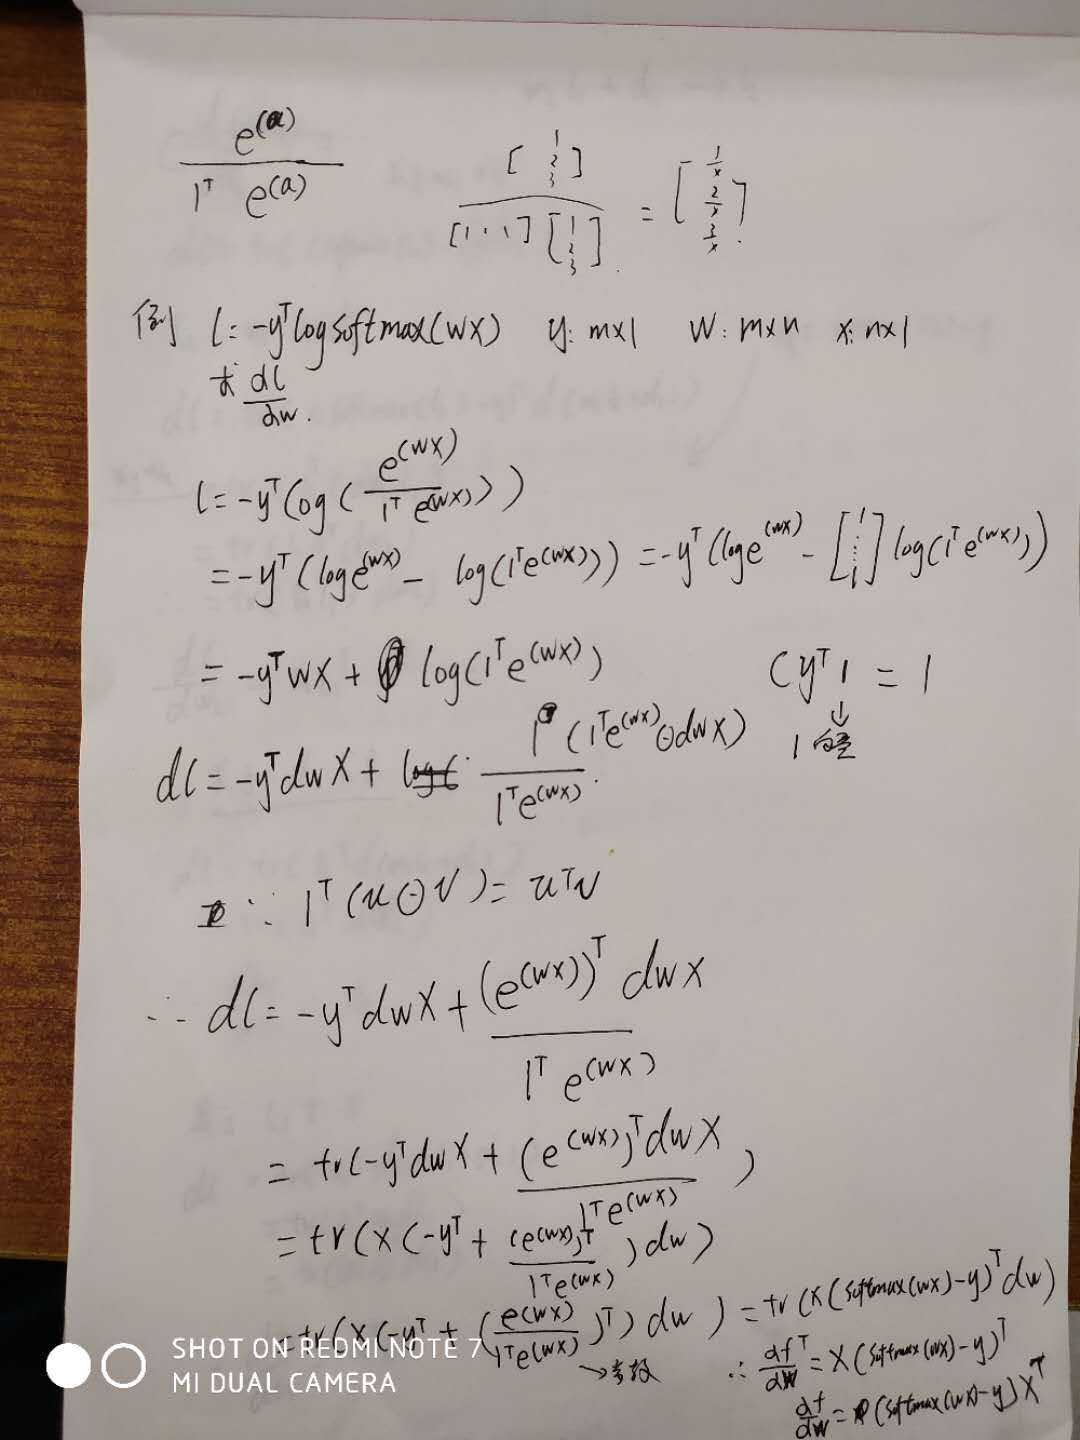 e^(a) / 1^T e^(a)    [1 2 3] / [1 1 1][1 2 3] = [1/x 2/x 3/x]
例 l = -y^T log softmax(wx)  y: m×1  W: m×n  x: n×1
求 dl/dw.
l = -y^T (log( e^(wx) / 1^T e^(wx) ))
= -y^T (log e^(wx) - log(1^T e^(wx))) = -y^T (log e^(wx) - [1 ⋮ 1] log(1^T e^(wx)))
= -y^T wx + log(1^T e^(wx))    (y^T 1 = 1
↓
1向量
dl = -y^T dw x + 1(1^T e^(wx) ⊙ dwx) / 1^T e^(wx)
∵ 1^T (u ⊙ v) = u^T v
∴ dl = -y^T dwx + (e^(wx))^T dwx / 1^T e^(wx)
= tr(-y^T dwx + (e^(wx))^T dwx / 1^T e^(wx))
= tr(x(-y^T + (e^(wx))^T / 1^T e^(wx)) dw)
= tr(x(-y^T + (e^(wx) / 1^T e^(wx))^T) dw) = tr(x(softmax(wx) - y)^T dw)
∴ df/dw^T = x(softmax(wx) - y)^T
df/dw = (softmax(wx) - y) x^T
SHOT ON REDMI NOTE 7
MI DUAL CAMERA